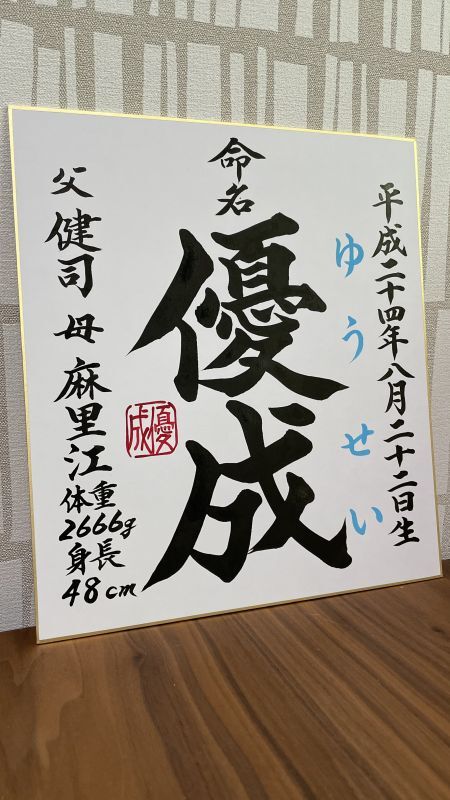 平成二十四年八月二十二日生
ゆうせい
命名
優成
優成
父 健司 母 麻里江
体重
2666g
身長
48cm